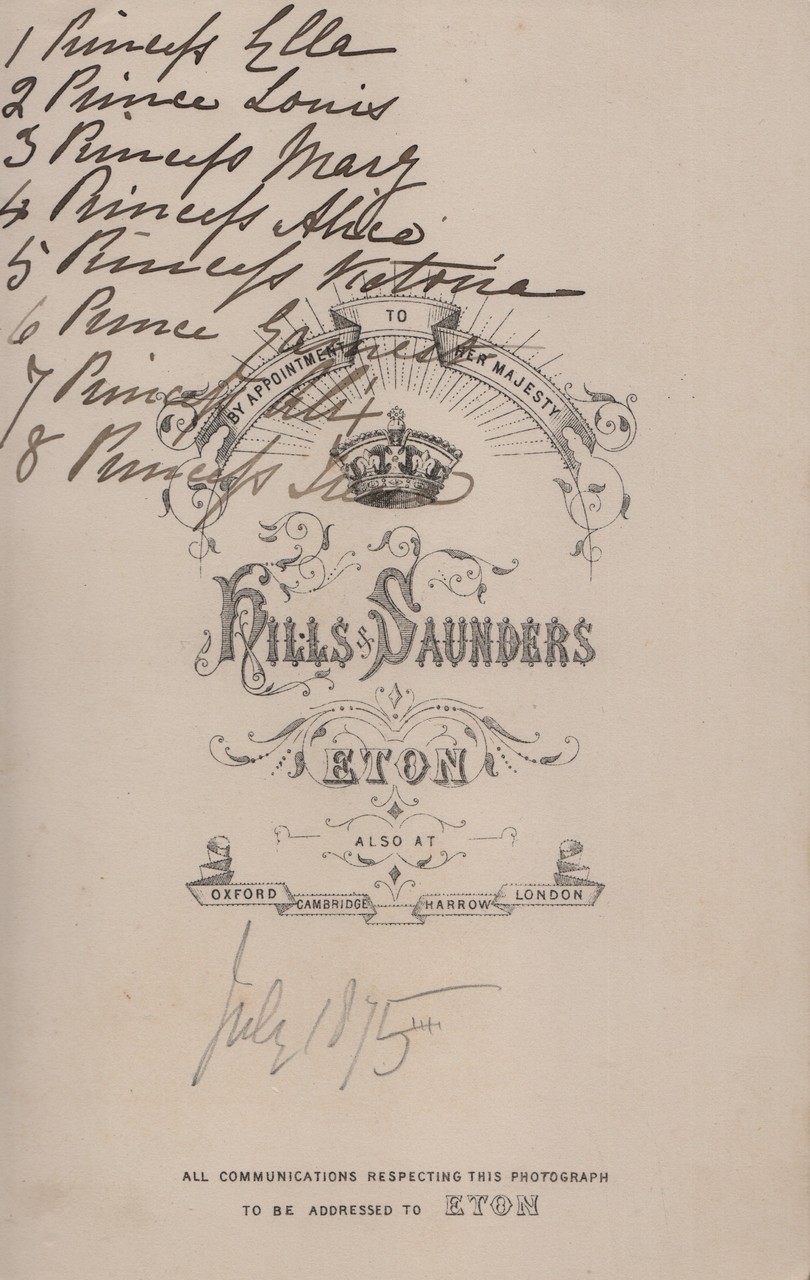 1 Princess Ella
2 Prince Louis
3 Princess Mary
4 Princess Alice
5 Princess Victoria
6 Prince Earnest
7 Princess Alix
8 Princess
BY APPOINTMENT TO HER MAJESTY
HILLS & SAUNDERS
ETON
ALSO AT
OXFORD CAMBRIDGE HARROW LONDON
July 1875
ALL COMMUNICATIONS RESPECTING THIS PHOTOGRAPH
TO BE ADDRESSED TO ETON